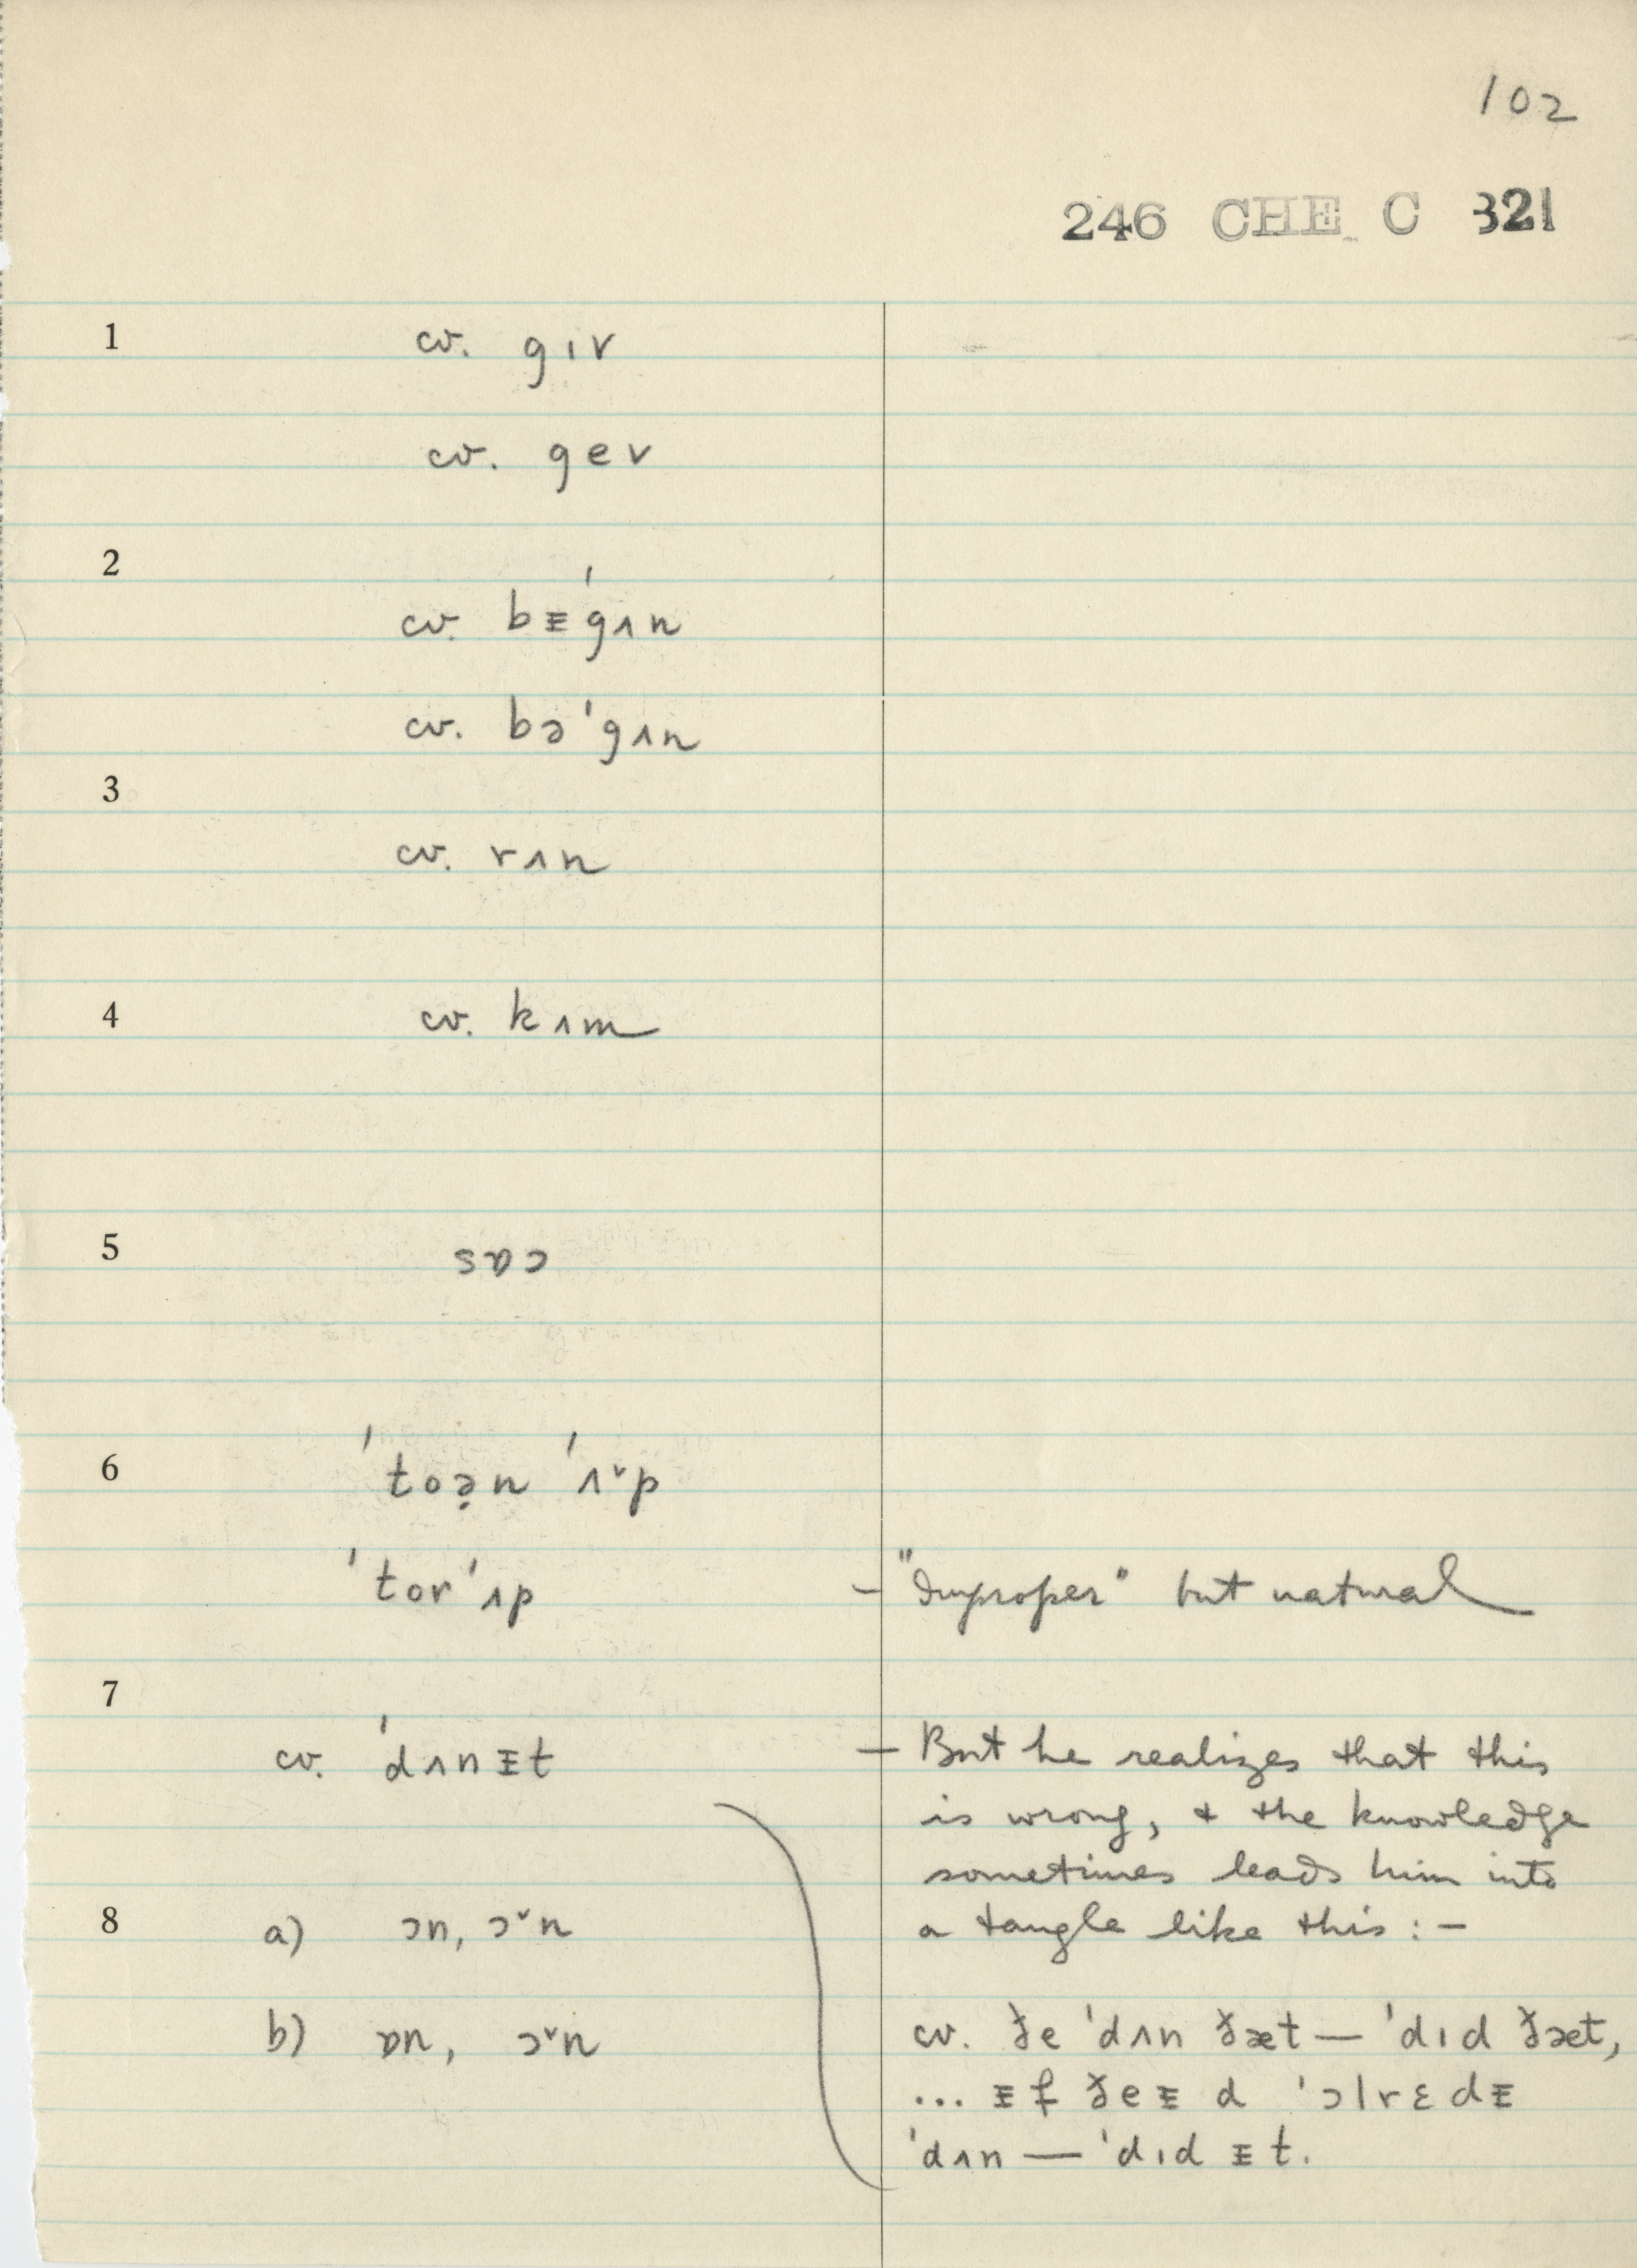 102
246 CHE C 321
1 cv. gɪv
cv. gev
2 cv. bᵻˈgʌn
cv. bəˈgʌn
3 cv. rʌn
4 cv. kʌm
5 sɒɔ
6 ˈtoə̣n ˈʌ˅p
ˈtor ˈʌp — "Improper" but natural
7 cv. ˈdʌnᵻt — But he realizes that this
is wrong, & the knowledge
sometimes leads him into
8 a) ɔn, ɔ˅n a tangle like this : —
b) ɒn, ɔ˅n cv. ðe ˈdʌn ðæt — ˈdɪd ðæt,
... ᵻf ðeᵻ d ˈɔlrɛdᵻ
ˈdʌn — ˈdɪd ᵻt.